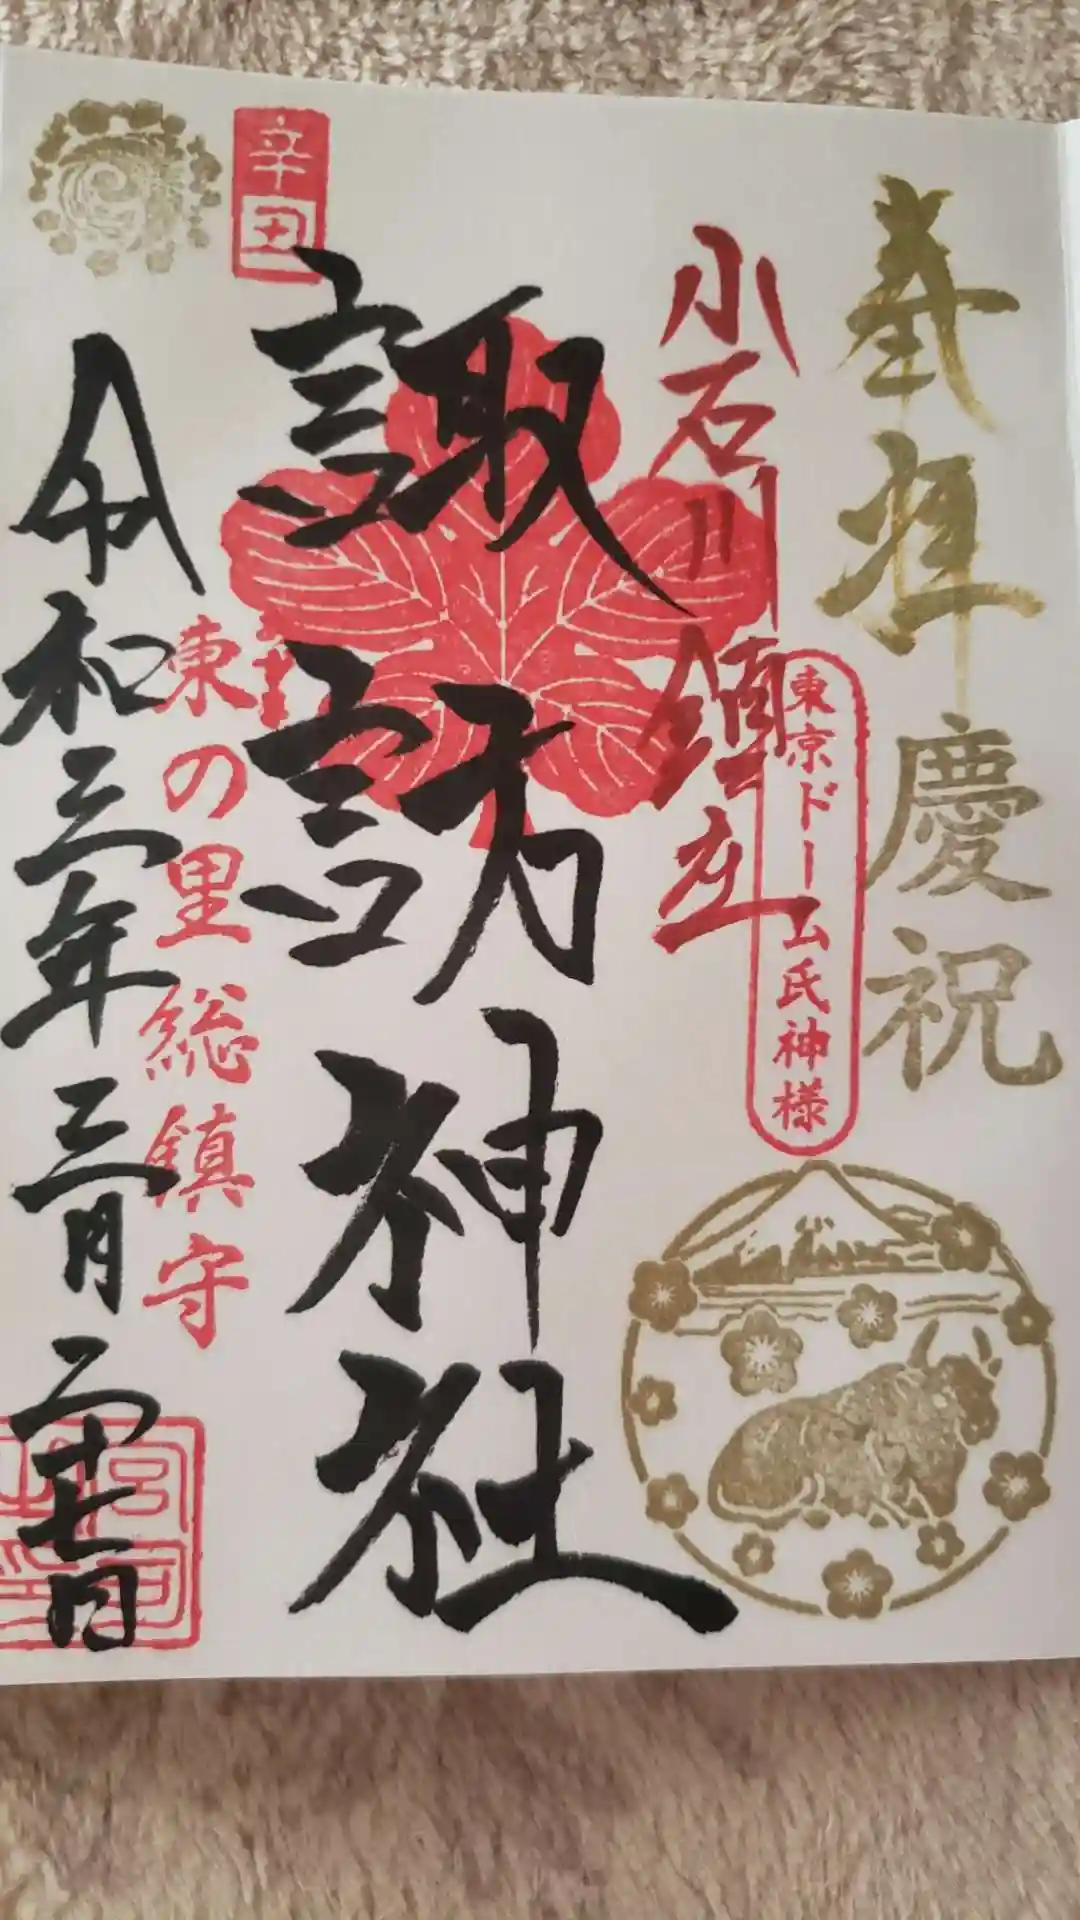 奉拝
慶祝
東京ドーム氏神様
小石川鎮座
諏訪神社
辛丑
東の里総鎮守
令和三年三月二十七日